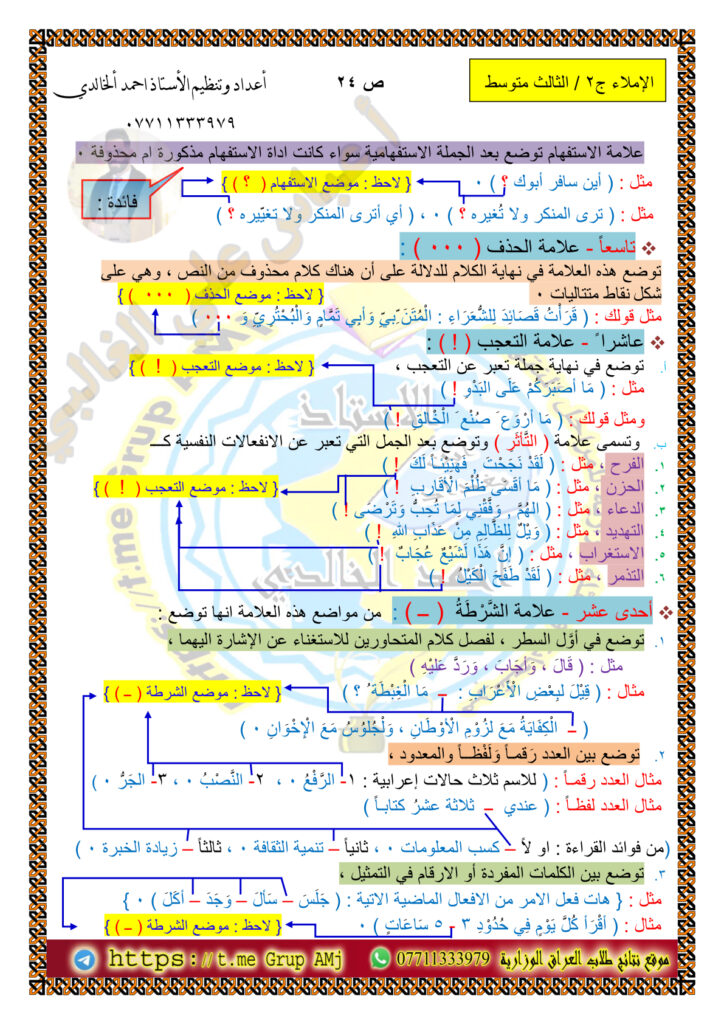 الإملاء ج٢ / الثالث متوسط
ص ٢٤
أعداد وتنظيم الأستاذ احمد الخالدي
٠٧٧١١٣٣٣٩٧٩
علامة الاستفهام توضع بعد الجملة الاستفهامية سواء كانت اداة الاستفهام مذكورة ام محذوفة ٠
مثل : ( أين سافر أبوك ؟ ) ٠ { لاحظ : موضع الاستفهام ( ؟ ) }
فائدة :
مثل : ( ترى المنكر ولا تُغيره ؟ ) ٠ ، ( أي أترى المنكر ولا تغيّيره ؟ )
❖ تاسعاً - علامة الحذف ( ٠٠٠ ) :
توضع هذه العلامة في نهاية الكلام للدلالة على أن هناك كلام محذوف من النص ، وهي على
شكل نقاط متتاليات ٠ { لاحظ : موضع الحذف ( ٠٠٠ ) }
مثل قولك : ( قَرَأتُ قَصَائِدَ لِلشُّعَرَاءِ : الْمُتَنَبِّيّ وَأبي تَمَّامٍ وَالْبُحْتُرِيّ وَ ٠٠٠ )
❖ عاشراً - علامة التعجب ( ! ) :
أ. توضع في نهاية جملة تعبر عن التعجب ، { لاحظ : موضع التعجب ( ! ) }
مثل : ( مَا أصْبَرَكُمْ عَلَى البَدْوِ ! )
ومثل قولك : ( مَا أرْوَعَ صُنْعَ الْخَالِقِ ! )
ب. وتسمى علامة ( التَّأثّرِ ) وتوضع بعد الجمل التي تعبر عن الانفعالات النفسية كـــ
١. الفرح ، مثل : ( لَقَدْ نَجَحْتَ ، فَهَنِيْئَاً لَكَ ! )
٢. الحزن ، مثل : ( مَا أقْسَى ظُلْمَ الْأقَارِبِ ! ) { لاحظ : موضع التعجب ( ! ) }
٣. الدعاء ، مثل : ( الهُمَّ , وَفِّقْنِي لِمَا تُحِبُّ وَتَرْضَى ! )
٤. التهديد ، مثل : ( وَيْلٌ لِلظَّالِمِ مِنْ عَذَابِ اللهِ ! )
٥. الاستغراب ، مثل : ( إنَّ هَذَا لَشَيْءٌ عُجَابٌ ! )
٦. التذمر ، مثل : ( لَقَدْ طَفَحَ الْكَيْلُ ! )
❖ أحدى عشر - علامة الشَّرْطَةُ ( ــ ) : من مواضع هذه العلامة انها توضع :
١. توضع في أوَّل السطر ، لفصل كلام المتحاورين للاستغناء عن الإشارة اليهما ،
مثل : ( قَالَ ، وَأجَابَ ، وَرَدَّ عَلَيْهِ )
مثال : ( قِيْلَ لبِعْضِ الْأعْرَابِ : ــ مَا الْغِبْطَةُ ؟ ) { لاحظ : موضع الشرطة ( ــ ) }
( ــ الْكِفَايَةُ مَعَ لزُوْمِ الْأوْطَانِ ، وَلْجُلُوسُ مَعَ الْإخْوَانِ ٠ )
٢. توضع بين العدد رَقماً وَلَفْظــاً والمعدود ،
مثال العدد رقمـاً : ( للاسم ثلاث حالات إعرابية : ١- الرَّفْعُ ٠ ، ٢- النَّصْبُ ٠ ، ٣- الجَرُّ ٠ )
مثال العدد لفظـاً : ( عندي ــ ثلاثة عشرُ كتابـاً )
(من فوائد القراءة : او لاً ــ كسب المعلومات ٠ ، ثانياً ــ تنمية الثقافة ٠ ، ثالثاً ــ زيادة الخبرة ٠ )
٣. توضع بين الكلمات المفردة أو الارقام في التمثيل ،
مثل : { هات فعل الامر من الافعال الماضية الاتية : ( جَلَسَ ــ سَألَ ــ وَجَدَ ــ أكَلَ ) ٠ }
مثال : ( أقْرَأ كُلَّ يَوْمٍ فِي حُدُوْدِ ٣ - ٥ سَاعَاتٍ ) ٠ { لاحظ : موضع الشرطة ( ــ ) }
موقع نتائج طلاب العراق الوزارية 07711333979 https://t.me Grup AMj